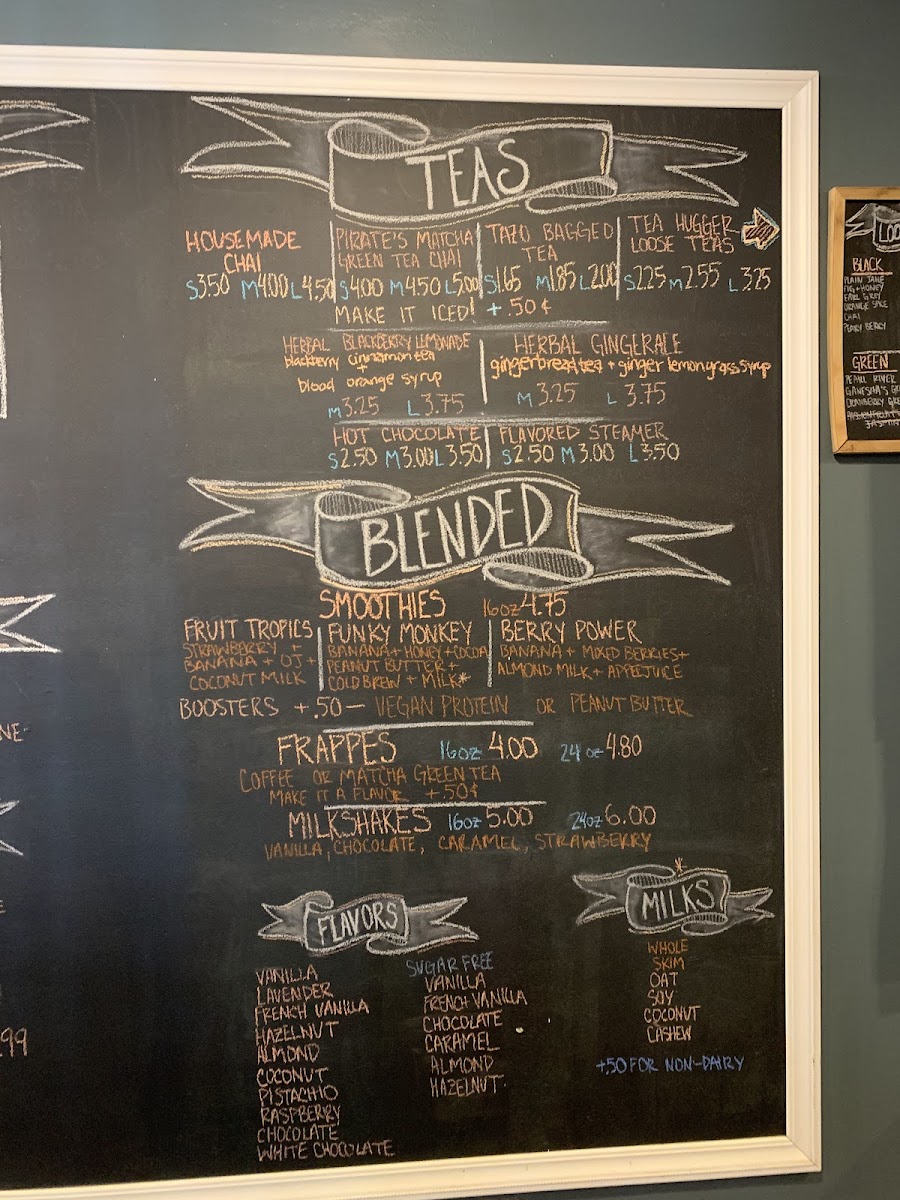 TEAS
HOUSEMADE
CHAI
S3.50 M4.00 L4.50
PIRATE'S MATCHA
GREEN TEA CHAI
S4.00 M4.50 L5.00
TAZO BAGGED
TEA
S1.65 M1.85 L2.00
TEA HUGGER
LOOSE TEAS
S2.25 M2.55 L3.25
MAKE IT ICED! +.50¢
HERBAL BLACKBERRY LEMONADE
blackberry cinnamon tea
+
blood orange syrup
M3.25 L3.75
HERBAL GINGERALE
gingerbread tea + ginger lemongrass syrup
M3.25 L3.75
HOT CHOCOLATE
S2.50 M3.00 L3.50
FLAVORED STEAMER
S2.50 M3.00 L3.50
BLENDED
SMOOTHIES 16oz 4.75
FRUIT TROPICS
STRAWBERRY +
BANANA + OJ +
COCONUT MILK
FUNKY MONKEY
BANANA + HONEY + COCOA
PEANUT BUTTER +
COLD BREW + MILK*
BERRY POWER
BANANA + MIXED BERRIES +
ALMOND MILK + APPLEJUICE
BOOSTERS +.50 — VEGAN PROTEIN OR PEANUT BUTTER
FRAPPES 16oz 4.00 24oz 4.80
COFFEE OR MATCHA GREEN TEA
MAKE IT A FLAVOR +50¢
MILKSHAKES 16oz 5.00 24oz 6.00
VANILLA, CHOCOLATE, CARAMEL, STRAWBERRY
FLAVORS
VANILLA
LAVENDER
FRENCH VANILLA
HAZELNUT
ALMOND
COCONUT
PISTACHIO
RASPBERRY
CHOCOLATE
WHITE CHOCOLATE
SUGAR FREE
VANILLA
FRENCH VANILLA
CHOCOLATE
CARAMEL
ALMOND
HAZELNUT
*
MILKS
WHOLE
SKIM
OAT
SOY
COCONUT
CASHEW
+.50 FOR NON-DAIRY
NE
E
.99
LOO
BLACK
PLAIN JANE
FIG + HONEY
EARL GREY
ORANGE SPICE
CHAI
GREEN
PEARL RIVER
GANESHA'S
CRANBERRY